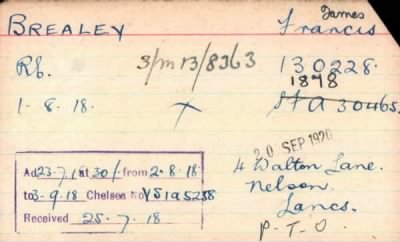 BREALEY James Francis
Rb. 3/MB/8363 130228.
1898
1-8-18. X StA 30465.
20 SEP 1920
Ad 23-7-18 at 30/- from 2-8-18.
to 3-9-18 Chelsea No
Received 25-7-18
4 Walton Lane.
Nelson.
Lancs.
P.T.O.